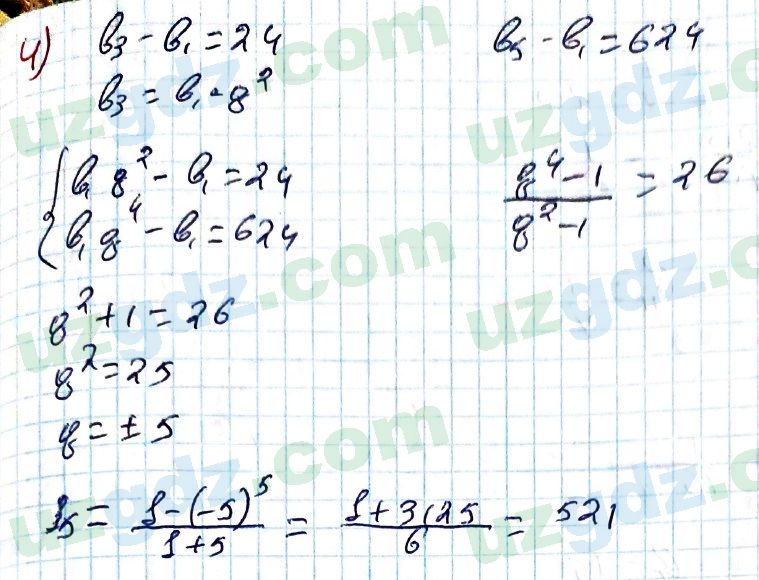 4) b₃ - b₁ = 24 b₅ - b₁ = 624
b₃ = b₁ · q²
{ b₁ q² - b₁ = 24
b₁ q⁴ - b₁ = 624
(q⁴ - 1)/(q² - 1) = 26
q² + 1 = 26
q² = 25
q = ± 5
S₅ = (1 - (-5)⁵)/(1 + 5) = (1 + 3125)/6 = 521
uzgdz.com
uzgdz.com
uzgdz.com
uzgdz.com
uzgdz.com
uzgdz.com